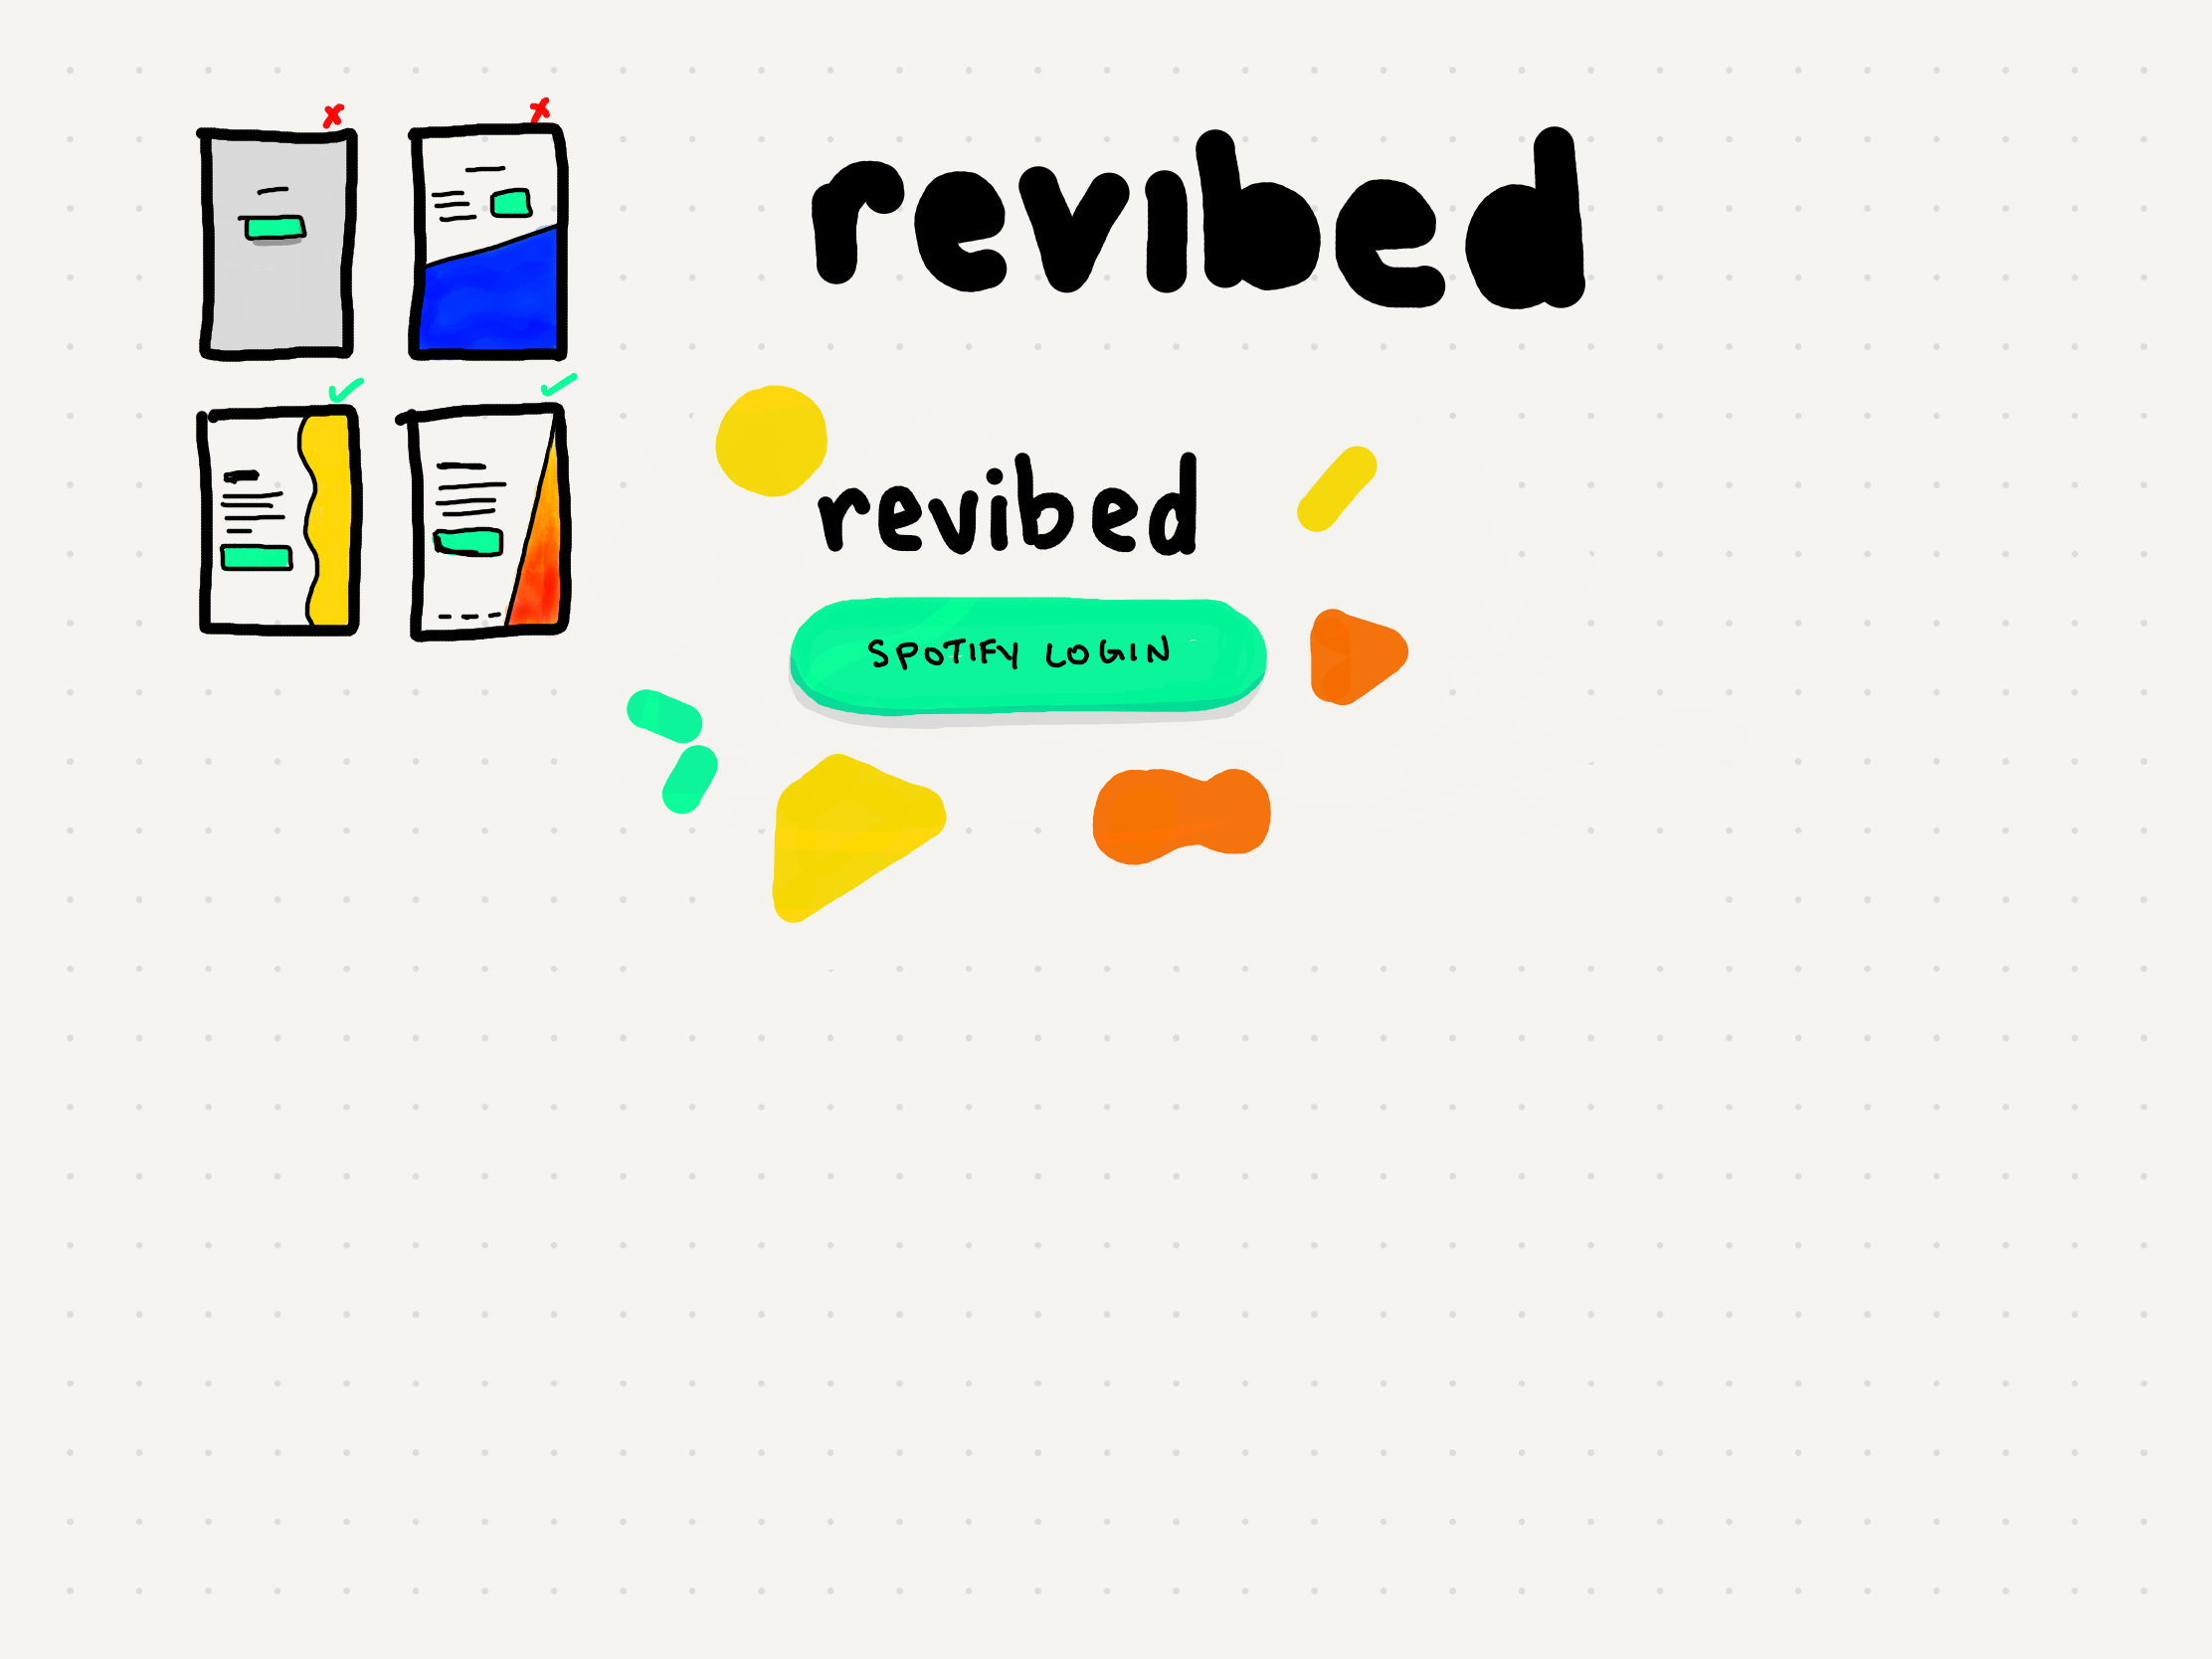 revibed
revibed
SPOTIFY LOGIN